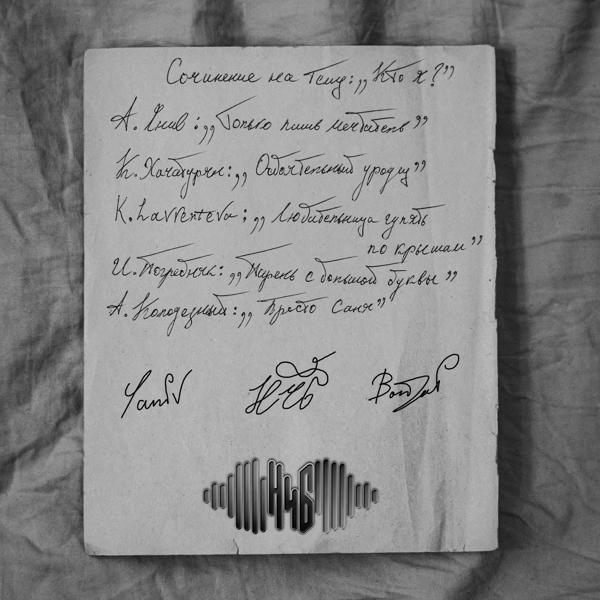 Сочинение на тему: „Кто я?”
А. Янив : „Только лишь мечтатель”
К. Хачатурян: „Обаятельный уродец”
K. Lavrenteva: „Любительница гулять
по крышам”
И. Погребняк: „Парень с большой буквы”
А. Колодезный: „Просто Саня”
НЧБ
НЧБ